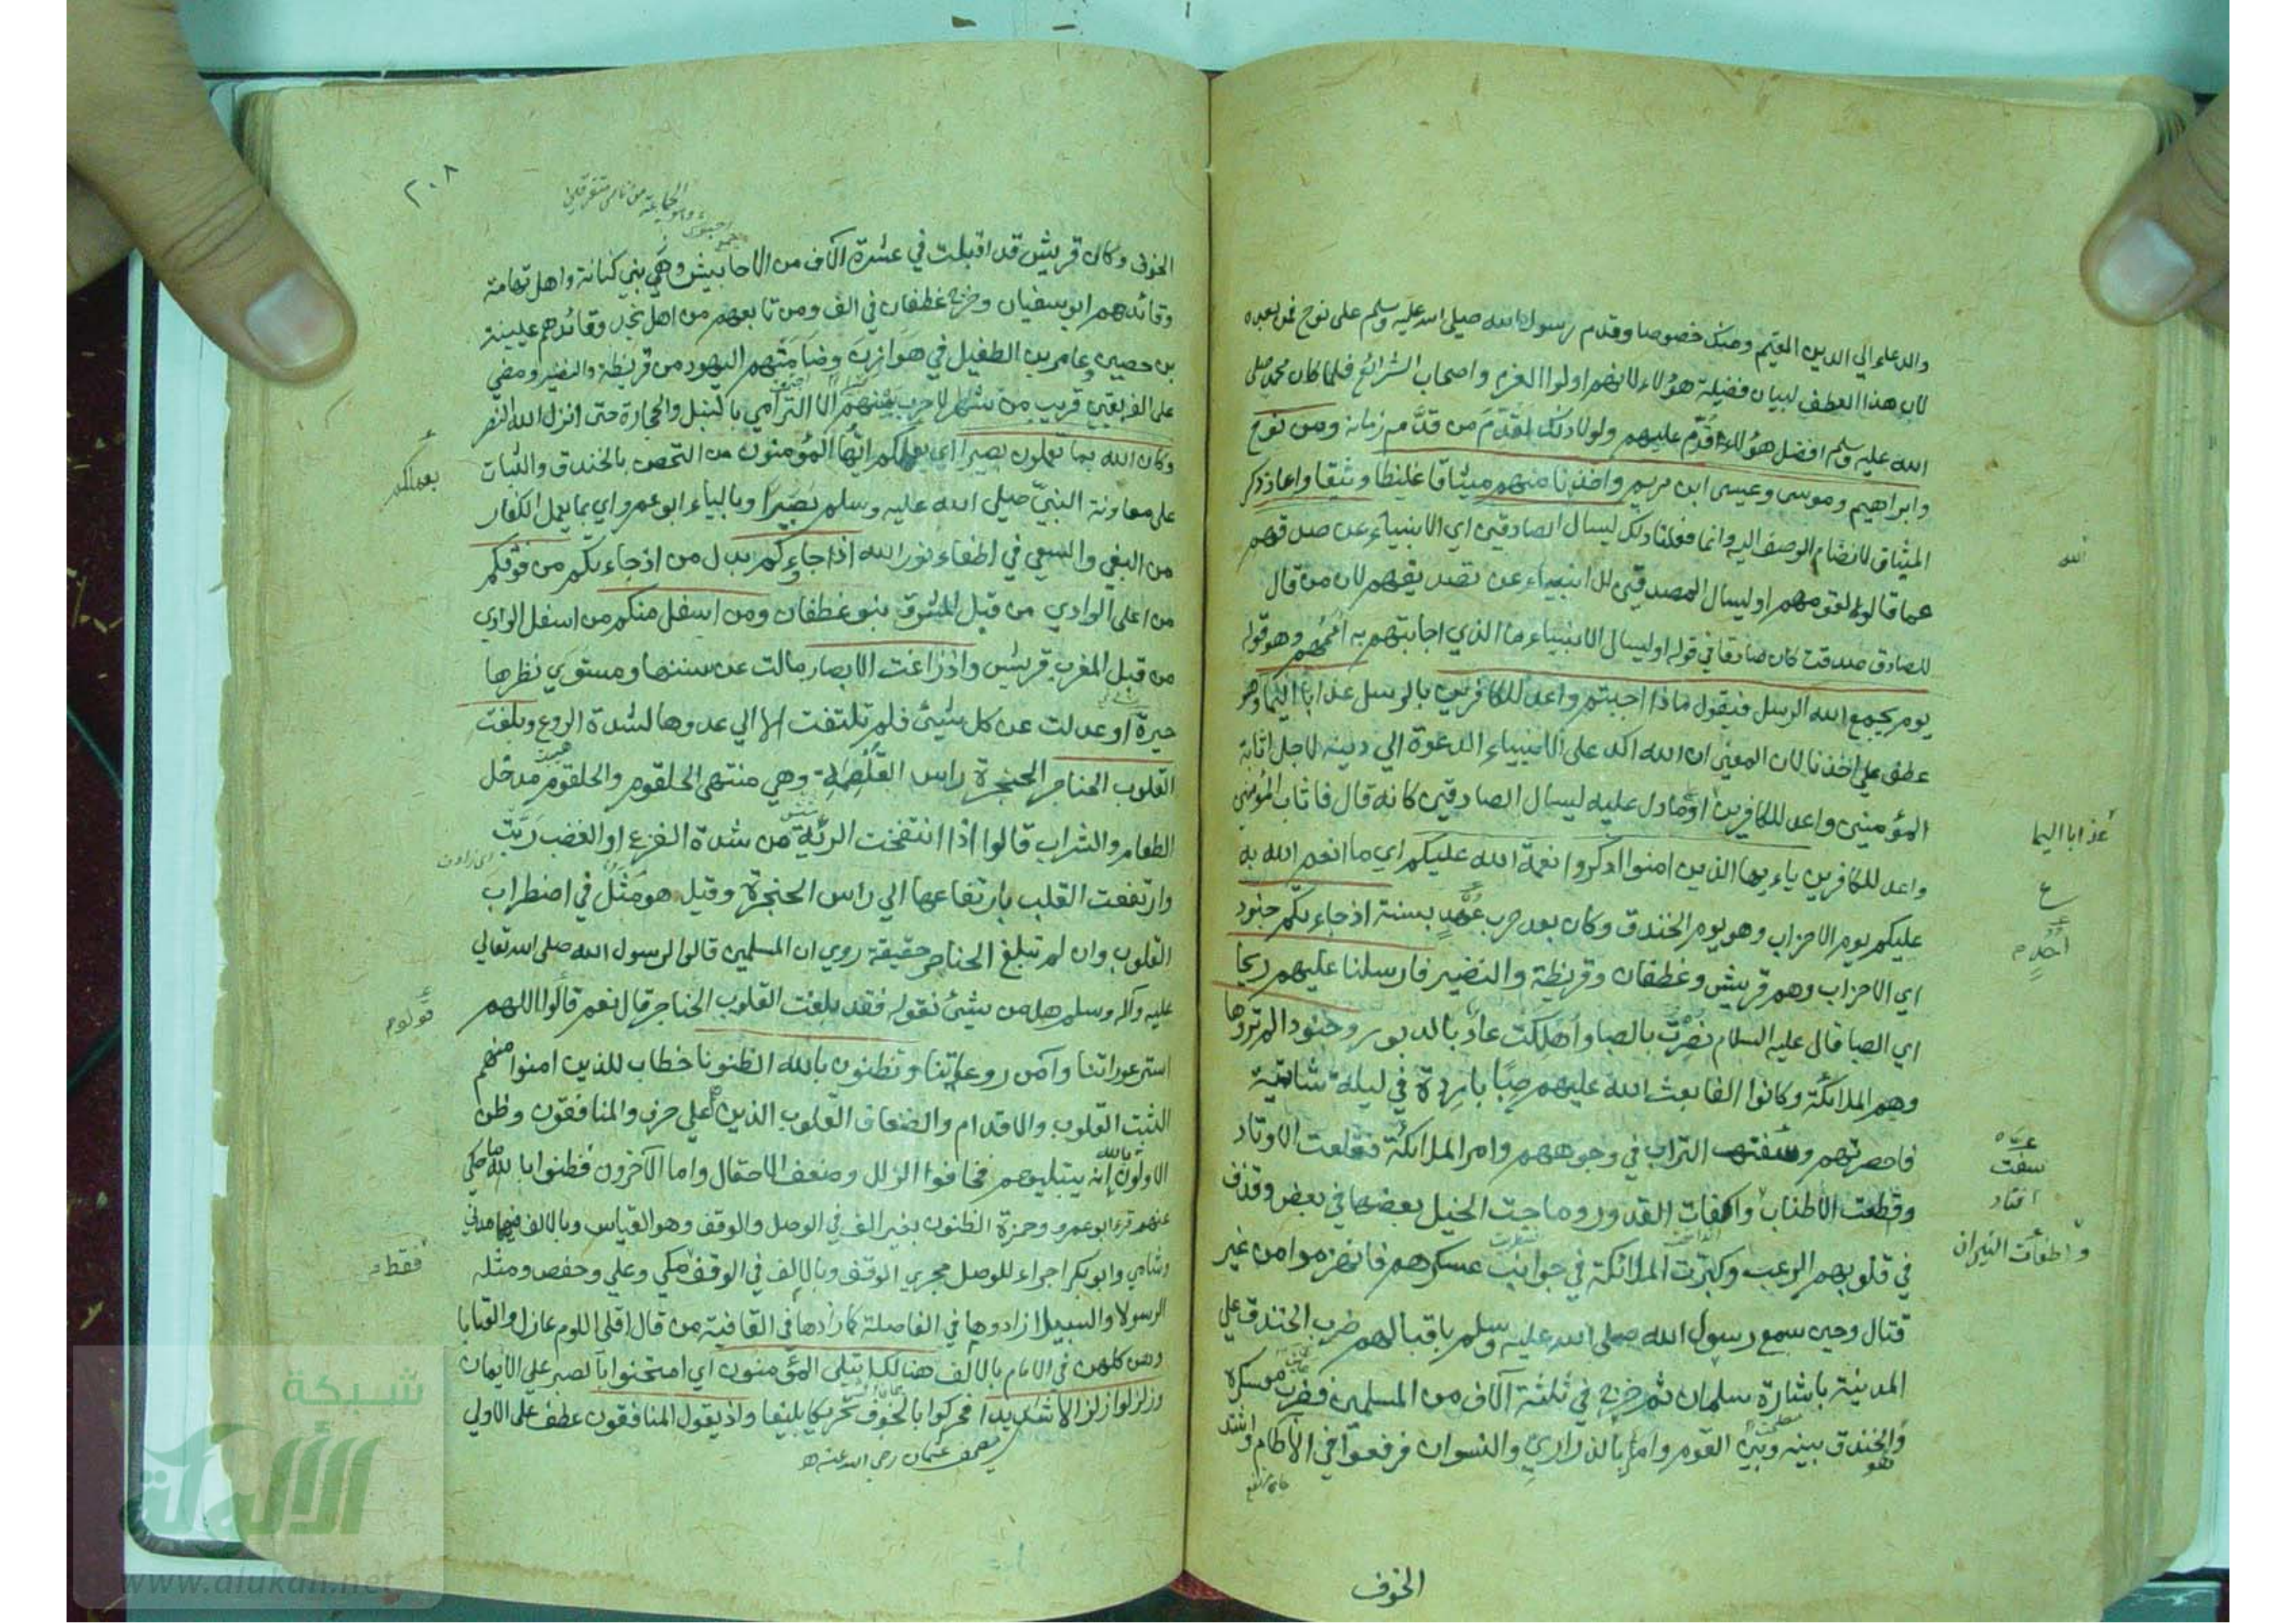 والدعاء الي الدين القيم ومنك خصوصا وقدم رسول الله صلي الله عليه وسلم على نوح فمن بعده
لان هذا العطف لبيان فضيلة هؤلاء لانهم اولوا العزم واصحاب الشرائع فلما كان محمد صلى
الله عليه وسلم افضل هؤلاء قُدّم عليهم ولولا ذلك لقُدّم من قدّمه زمانه ومن نوح
وابراهيم وموسى وعيسى ابن مريم واخذنا منهم ميثاقا غليظا وثيقا واعاد ذكر
الميثاق لانضمام الوصف اليه وانما فعلنا ذلك ليسال الصادقين اي الانبياء عن صدقهم
الله
عما قالوه لقومهم او ليسال المصدقين للانبياء عن تصديقهم لان من قال
للصادق صدقت كان صادقا في قوله او ليسال الانبياء ما الذي اجابتهم به اممهم وهو قوله
يوم يجمع الله الرسل فيقول ماذا اجبتم واعد للكافرين بالرسل عذابا اليما وهو
عطف على اخذنا لان المعنى ان الله اكد على الانبياء الدعوة الي دينه لاجل اثابة
المؤمنين واعد للكافرين او ما دل عليه ليسال الصادقين كانه قال فاثاب المؤمنين
عذابا اليما
واعد للكافرين ياءيها الذين امنوا اذكروا نعمة الله عليكم اي ما انعم الله به
ع
عليكم يوم الاحزاب وهو يوم الخندق وكان بعد حرب بسنة اذ جاءتكم جنود
اُحُدٍ
اي الاحزاب وهم قريش وغطفان وقريظة والنضير فارسلنا عليهم ريحا
اي الصبا قال عليه السلام نصرت بالصبا واهلكت عاد بالدبور وجنودا لم تروها
وهم الملائكة وكانوا الفا بعث الله عليهم صبا باردة في ليلة شاتية
فاحصرتهم وسفت التراب في وجوههم وامر الملائكة فقلعت الاوتاد
سفت
وقطعت الاطناب واكفات القدور وماجت الخيل بعضها في بعض وقذف
واطفأت النيران
في قلوبهم الرعب وكبرت الملائكة في جوانب عسكرهم فانهزموا من غير
قتال وحين سمع رسول الله صلى الله عليه وسلم باقبالهم ضرب الخندق على
المدينة باشارة سلمان ثم خرج في ثلثة آلاف من المسلمين فضرب معسكره
والخندق بينه وبين القوم وامر بالذراري والنسوان فرفعوا في الآطام واشتد
الخوف
٢٠٨
الخوف وكان قريش قد اقبلت في عشرة آلاف من الاحابيش وهي بني كنانة واهل تهامة
وقائدهم ابو سفيان وخرج غطفان في الف ومن تابعهم من اهل نجد وقائدهم عيينة
بن حصين وعامر بن الطفيل في هوازن وضامّتهم اليهود من قريظة والنضير ومضي
على الفريقين قريب من شهر لا حرب بينهم الا الترامي بالنبل والحجارة حتى انزل الله النصر
وكان الله بما تعملون بصيرا اي بعملكم ايها المؤمنون من التحصن بالخندق والثبات
بعملكم
على معاونة النبيّ صلى الله عليه وسلم بصيرا وبالياء ابو عمرو اي بما يعمل الكفار
من البغي والسعي في اطفاء نور الله اذ جاءوكم بدل من اذ جاءتكم من فوقكم
من اعلى الوادي من قبل المشرق بنو غطفان ومن اسفل منكم من اسفل الوادي
من قبل المغرب قريش واذ زاغت الابصار مالت عن سننها ومستوى نظرها
حيرة او عدلت عن كل شيئ فلم تلتفت الا الي عدوها لشدة الروع وبلغت
القلوب الحناجر الحنجرة راس الغلصمة وهي منتهى الحلقوم والحلقوم مدخل
الطعام والشراب قالوا اذا انتفخت الرئة من شدة الفزع او الغضب رَبَت
وارتفعت القلب بارتفاعها الي راس الحنجرة وقيل هو مَثَلٌ في اضطراب
القلوب وان لم تبلغ الحناجر حقيقة روي ان المسلمين قالوا لرسول الله صلى الله تعالى
عليه وآله وسلم هل من شيئ نقوله فقد بلغت القلوب الحناجر قال نعم قالوا اللهم
قولوا
استر عوراتنا وآمن روعاتنا وتظنون بالله الظنونا خطاب للذين امنوا منهم
الثبت القلوب والاقدام والضعاف القلوب الذين هم على حرف والمنافقون وظن
الاولون انه يبتليهم فخافوا الزلل وضعف الاحتمال واما الآخرون فظنوا بالله ما حكي
عنهم قرء ابو عمرو وحمزة الظنون بغير الف في الوصل والوقف وهو القياس وبالالف فيهما مدني
وشامي وابو بكر اجراء للوصل مجرى الوقف وبالالف في الوقف مكي وعلي وحفص ومثله
فقط
الرسولا والسبيلا زادوها في الفاصلة كما زادها في القافية من قال اقلى اللوم عاذل والعتابا
وهن كلهن في الامام بالالف هنالك ابتلي المؤمنون اي امتحنوا بالصبر علي الايمان
وزلزلوا زلزالا شديدا فحركوا بالخوف تحريكا بليغا واذ يقول المنافقون عطف على الاولي
مصحف عثمان رضي الله عنه
شبكة
الألوكة
www.alukah.net